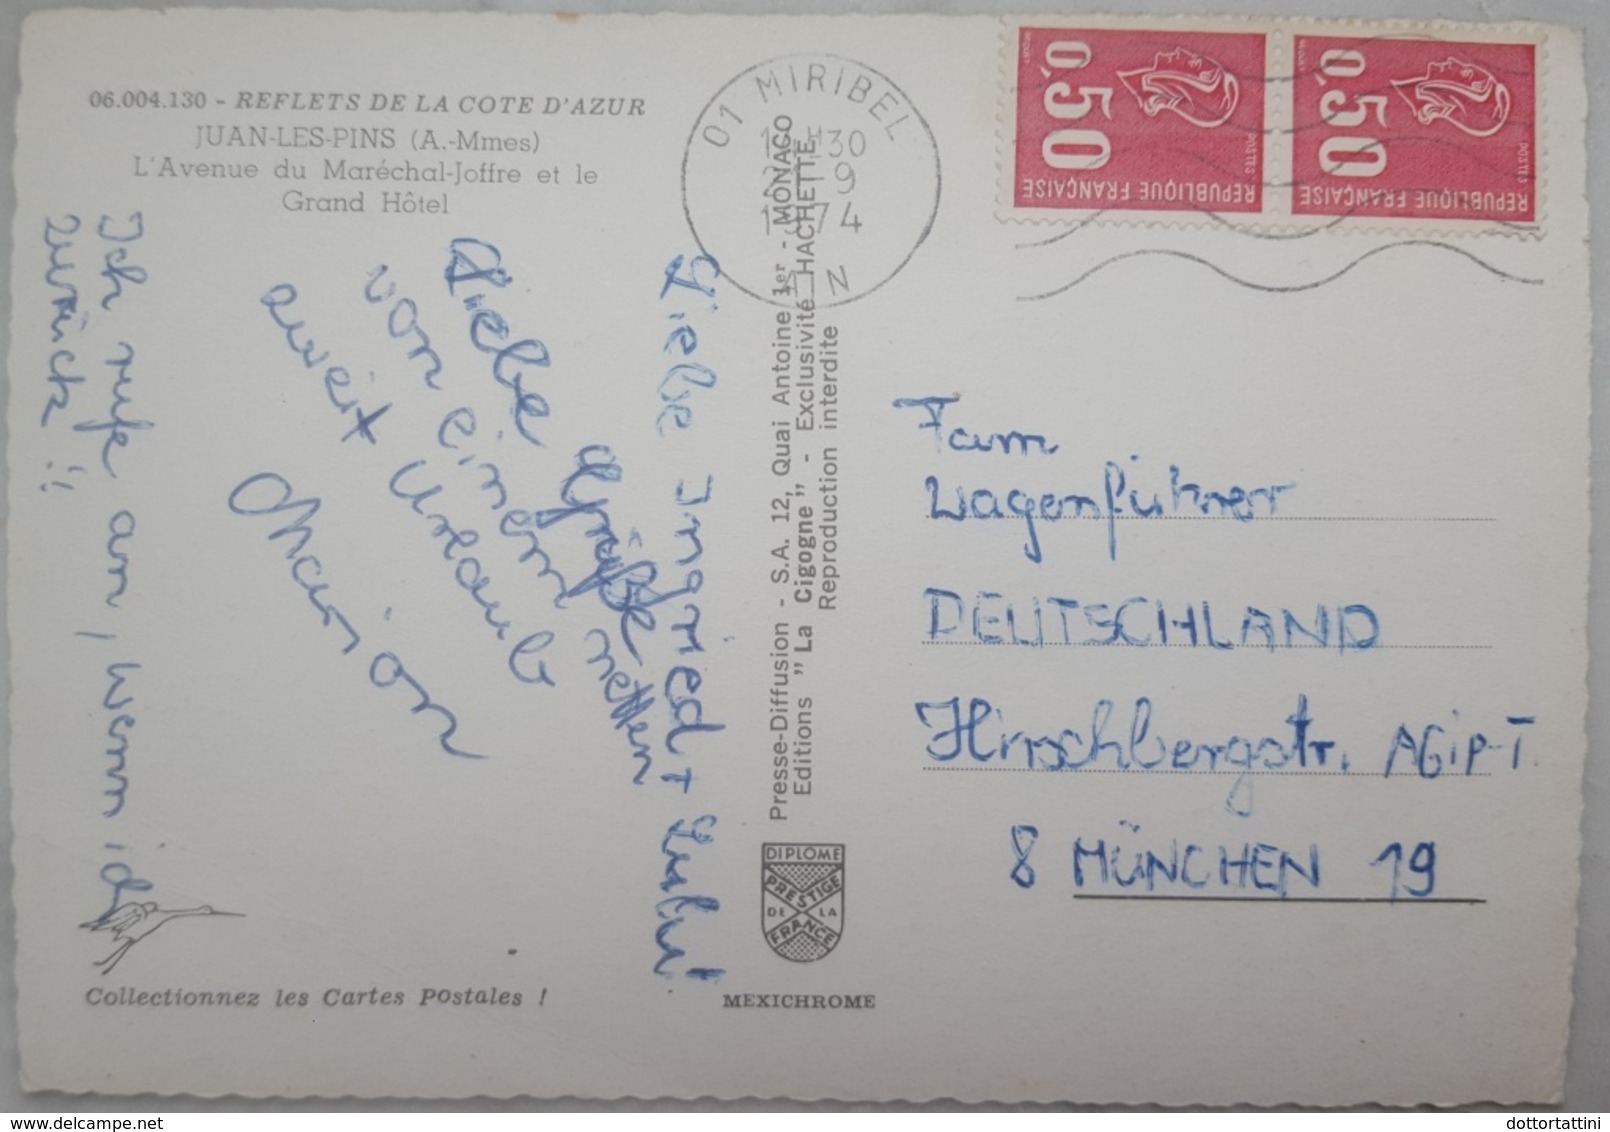 06.004.130 - REFLETS DE LA COTE D'AZUR
JUAN-LES-PINS (A.-Mmes)
L'Avenue du Maréchal-Joffre et le
Grand Hôtel
Liebe Ingried + Lulu!
Liebe Grüße
von einem netten
zweit Urlaub
Marion
Ich rufe an, wenn ich
zurück !!
Collectionnez les Cartes Postales !
Presse-Diffusion - S.A. 12, Quai Antoine 1er - MONACO
Editions "La Cigogne" - Exclusivité HACHETTE
Reproduction interdite
DIPLOME
PRESTIGE
DE LA
FRANCE
MEXICHROME
01 MIRIBEL
30
9
74
AIN
0,50
POSTES
REPUBLIQUE FRANÇAISE
0,50
POSTES
REPUBLIQUE FRANÇAISE
Fam
Wagenführer
DEUTSCHLAND
Hirschbergstr. AGIP-T.
8 MÜNCHEN 19
dottortattini